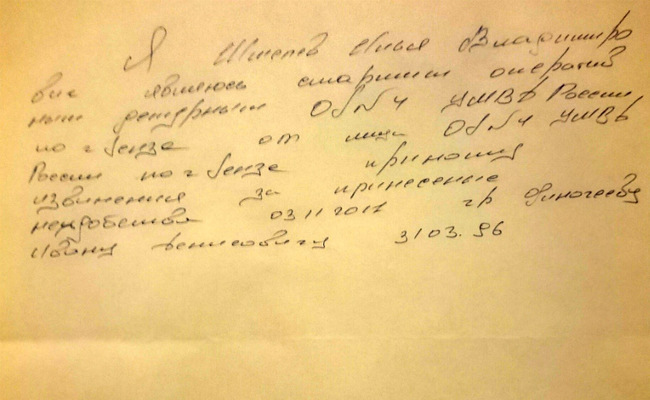 Я Шмелев Илья Владимиро
вич являюсь старшим оператив
ным дежурным ОП №4 УМВД России
по г Пензе от лица ОП №4 УМВД
России по г Пензе приношу
извинения за принесение
неудобства 03 11 2017 гр
Ивану Денисовичу 31 03. 96